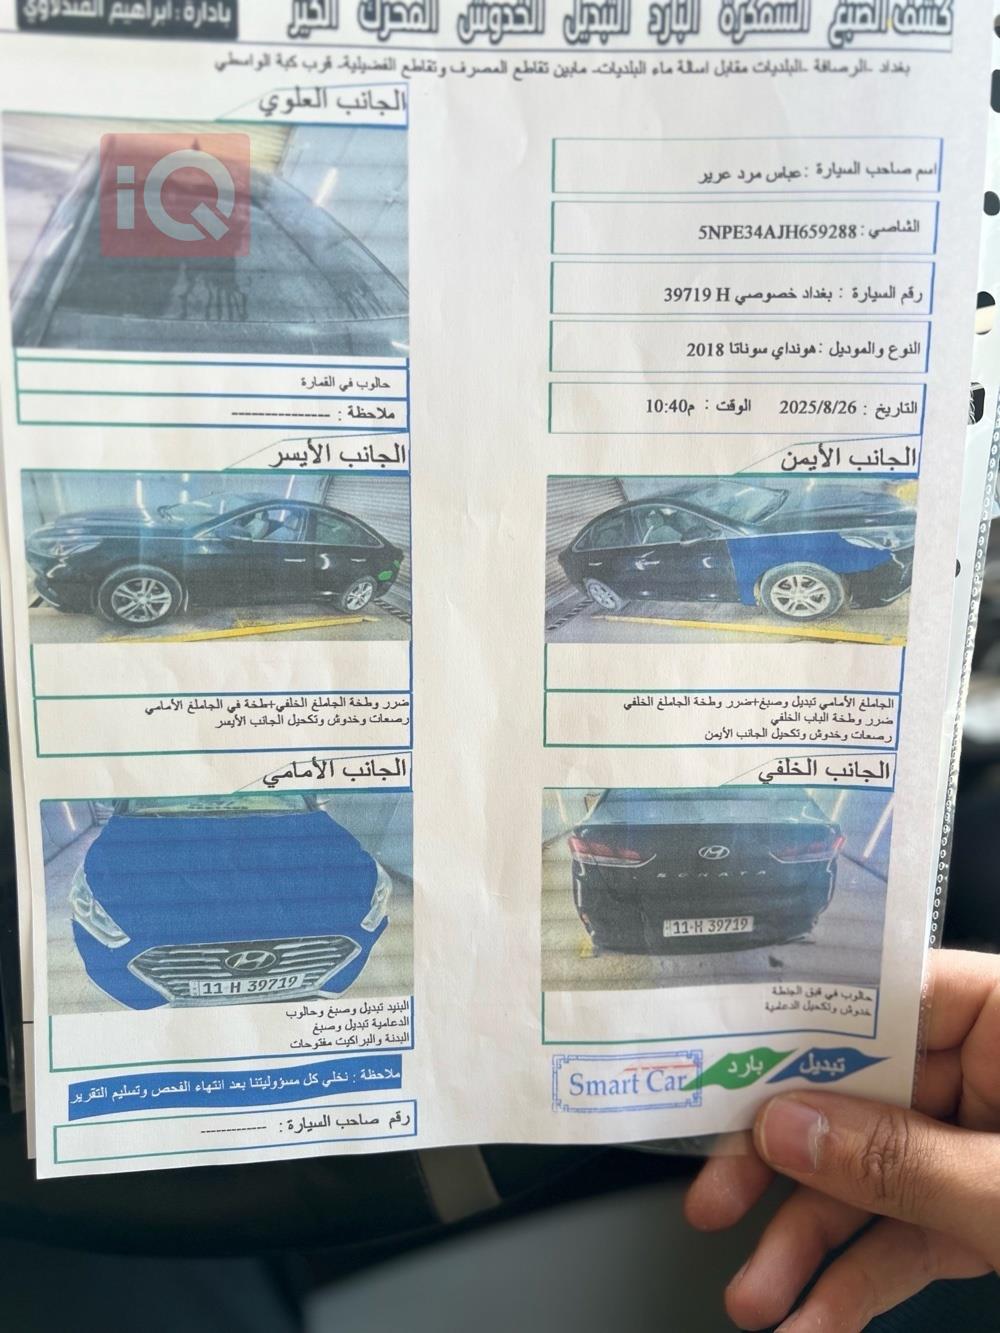 كشف الصبغ السمكرة البارد التبديل الخدوش المحرك الكير
بأدارة : ابراهيم المندلاوي
بغداد -الرصافة -البلديات مقابل اسالة ماء البلديات- مابين تقاطع المصرف وتقاطع الفضيلية- قرب كبة الواسطي
الجانب العلوي
iQ
حالوب في القمارة
ملاحظة : ---------------
اسم صاحب السيارة : عباس مرد عرير
الشاصي : 5NPE34AJH659288
رقم السيارة : بغداد خصوصي H 39719
النوع والموديل : هونداي سوناتا 2018
التاريخ : 2025/8/26 الوقت : 10:40م
الجانب الأيمن
الجاملغ الأمامي تبديل وصبغ+ضرر وطخة الجاملغ الخلفي
ضرر وطخة الباب الخلفي
رصعات وخدوش وتكحيل الجانب الأيمن
الجانب الأيسر
ضرر وطخة الجاملغ الخلفي+طخة في الجاملغ الأمامي
رصعات وخدوش وتكحيل الجانب الأيسر
الجانب الخلفي
SONATA
11-H 39719
حالوب في قبق الجنطة
خدوش وتكحيل الدعامية
الجانب الأمامي
11 H 39719
البنيد تبديل وصبغ وحالوب
الدعامية تبديل وصبغ
البدنة والبراكيت مفتوحات
تبديل
بارد
Smart Car
ملاحظة : نخلي كل مسؤوليتنا بعد انتهاء الفحص وتسليم التقرير
رقم صاحب السيارة : -------------